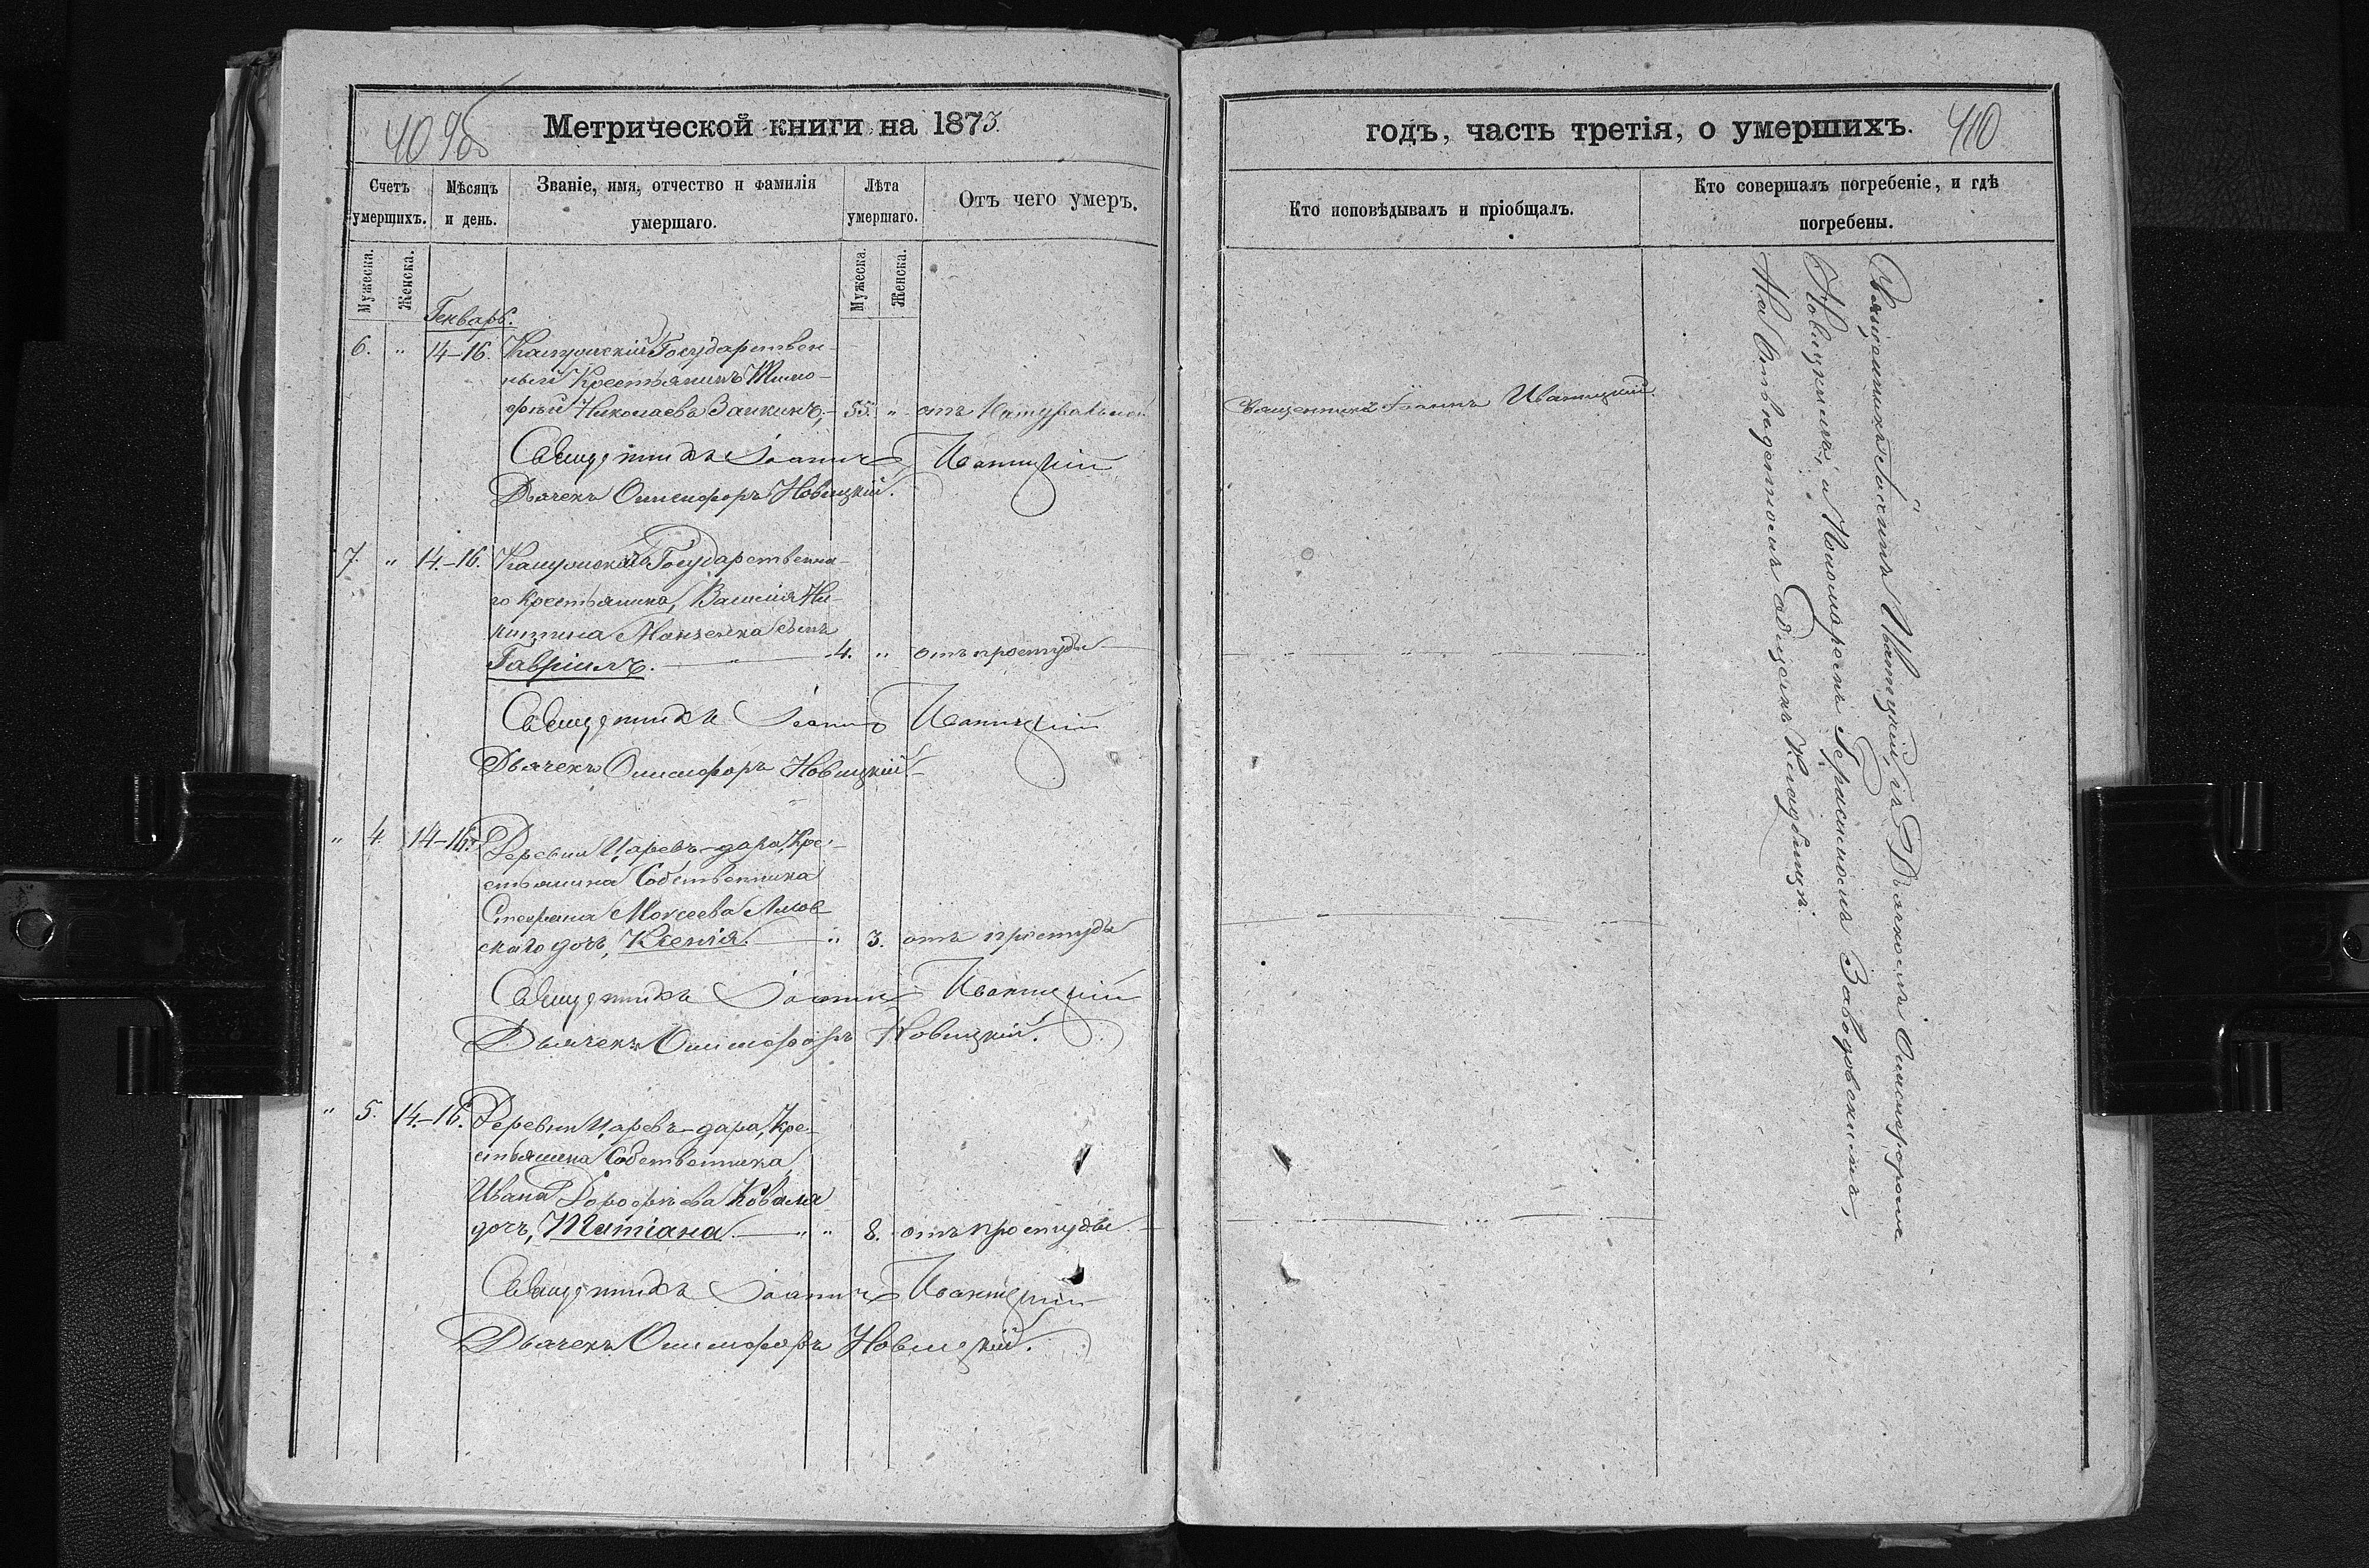 409об
Метрической книги на 1873.
Счетъ умершихъ.
Мѣсяцъ и день.
Званіе, имя, отчество и фамилія умершаго.
Лѣта умершаго.
Отъ чего умеръ.
Мужеска.
Женска.
Мужеска.
Женска.
Генварь.
6. " 14-16. Государствен-
ный Крестьянинъ Тимо-
фей Николаевъ Заикинъ, - 55. " отъ Натуральной
Священникъ Іоаннъ Иваницкій
Дьячекъ Онисифоръ Новицкій.
7. " 14.-16. Государственна-
го Крестьянина, Василія Ни-
китина сынъ
Гавріилъ. " 4. " отъ простуды
Священникъ Іоаннъ Иваницкій
Дьячекъ Онисифоръ Новицкій
" 4. 14-16. Деревни Царевъ-дара, Кре-
стьянина Собственника
Стефана Моисеева
скаго дочь, Ксенія. " 3. отъ простуды
Священникъ Іоаннъ Иваницкій
Дьячекъ Онисифоръ Новицкій.
" 5. 14.-16. Деревни Царевъ-дара, Кре-
стьянина Собственника
Ивана Дорофѣева Коваля
дочь, Татіана. " " 8. отъ простуды
Священникъ Іоаннъ Иваницкій
Дьячекъ Онисифоръ Новицкій.
годъ, часть третія, о умершихъ.
410
Кто исповѣдывалъ и пріобщалъ.
Кто совершалъ погребеніе, и гдѣ погребены.
Священникъ Іоаннъ Иваницкій.
Священникъ Іоаннъ Иваницкій, съ Дьячкомъ Онисифоромъ
Новицкимъ, и Пономаремъ Герасимомъ Заводовскимъ,
На Отведенномъ Кладбищѣ.